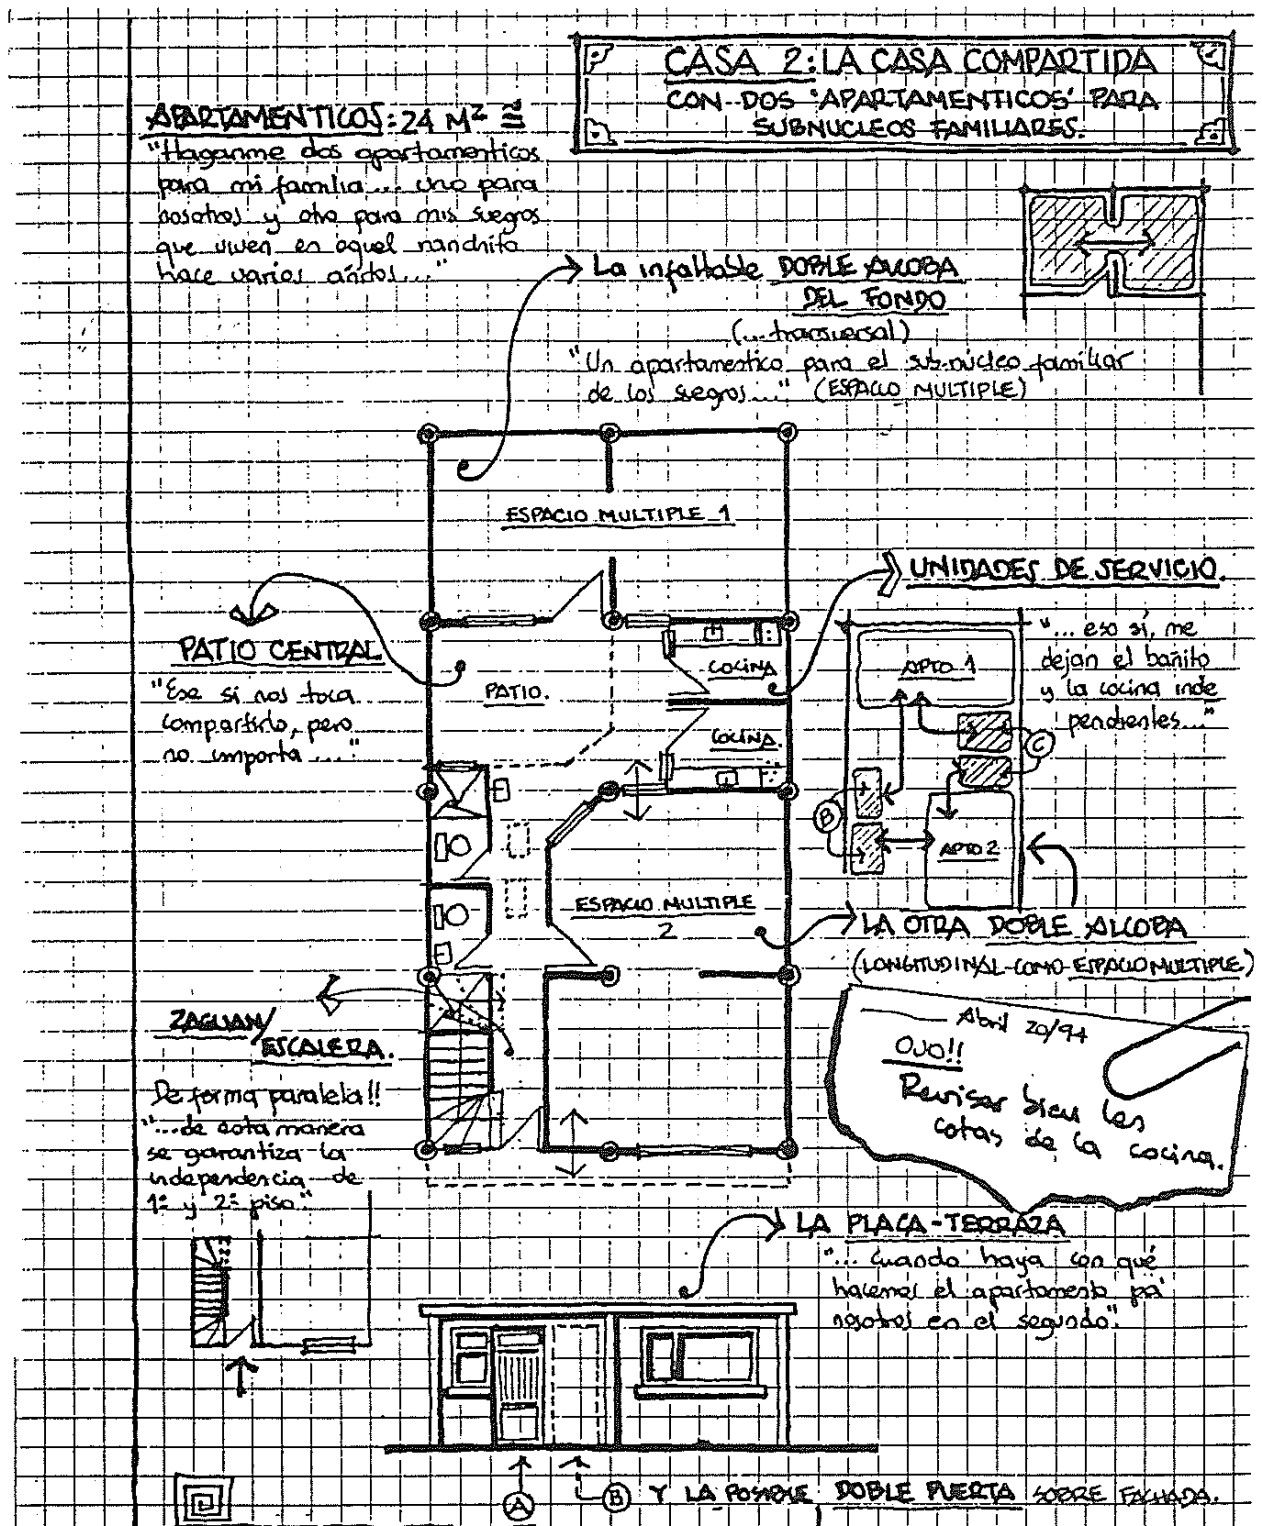 CASA 2: LA CASA COMPARTIDA
CON DOS 'APARTAMENTICOS' PARA
SUBNUCLEOS FAMILIARES.
APARTAMENTICOS: 24 M² ≅
"Haganme dos apartamenticos
para mi familia... uno para
nosotros y otro para mis suegros
que viven en aquel ranchito
hace varios añitos...."
La infaltable DOBLE ALCOBA
DEL FONDO
(...transversal)
"Un apartamentico para el sub-núcleo familiar
de los suegros...." (ESPACIO MULTIPLE)
ESPACIO MULTIPLE 1
UNIDADES DE SERVICIO.
"... eso sí, me
dejan el bañito
y la cocina inde
pendientes..."
APTO 1
C
B
APTO 2
PATIO CENTRAL
"Ese si nos toca
compartirlo, pero
no importa ..."
PATIO.
COCINA
COCINA.
ESPACIO MULTIPLE
2
LA OTRA DOBLE ALCOBA
(LONGITUDINAL-COMO ESPACIO MULTIPLE)
Abril 20/94
OJO!!
Revisar bien las
cotas de la cocina.
ZAGUAN/
ESCALERA.
De forma paralela!!
"...de esta manera
se garantiza la
independencia de
1º y 2º piso."
LA PLACA-TERRAZA
"... cuando haya con qué
hacemos el apartamento pa'
nosotros en el segundo."
A
B Y LA POSIBLE DOBLE PUERTA SOBRE FACHADA.